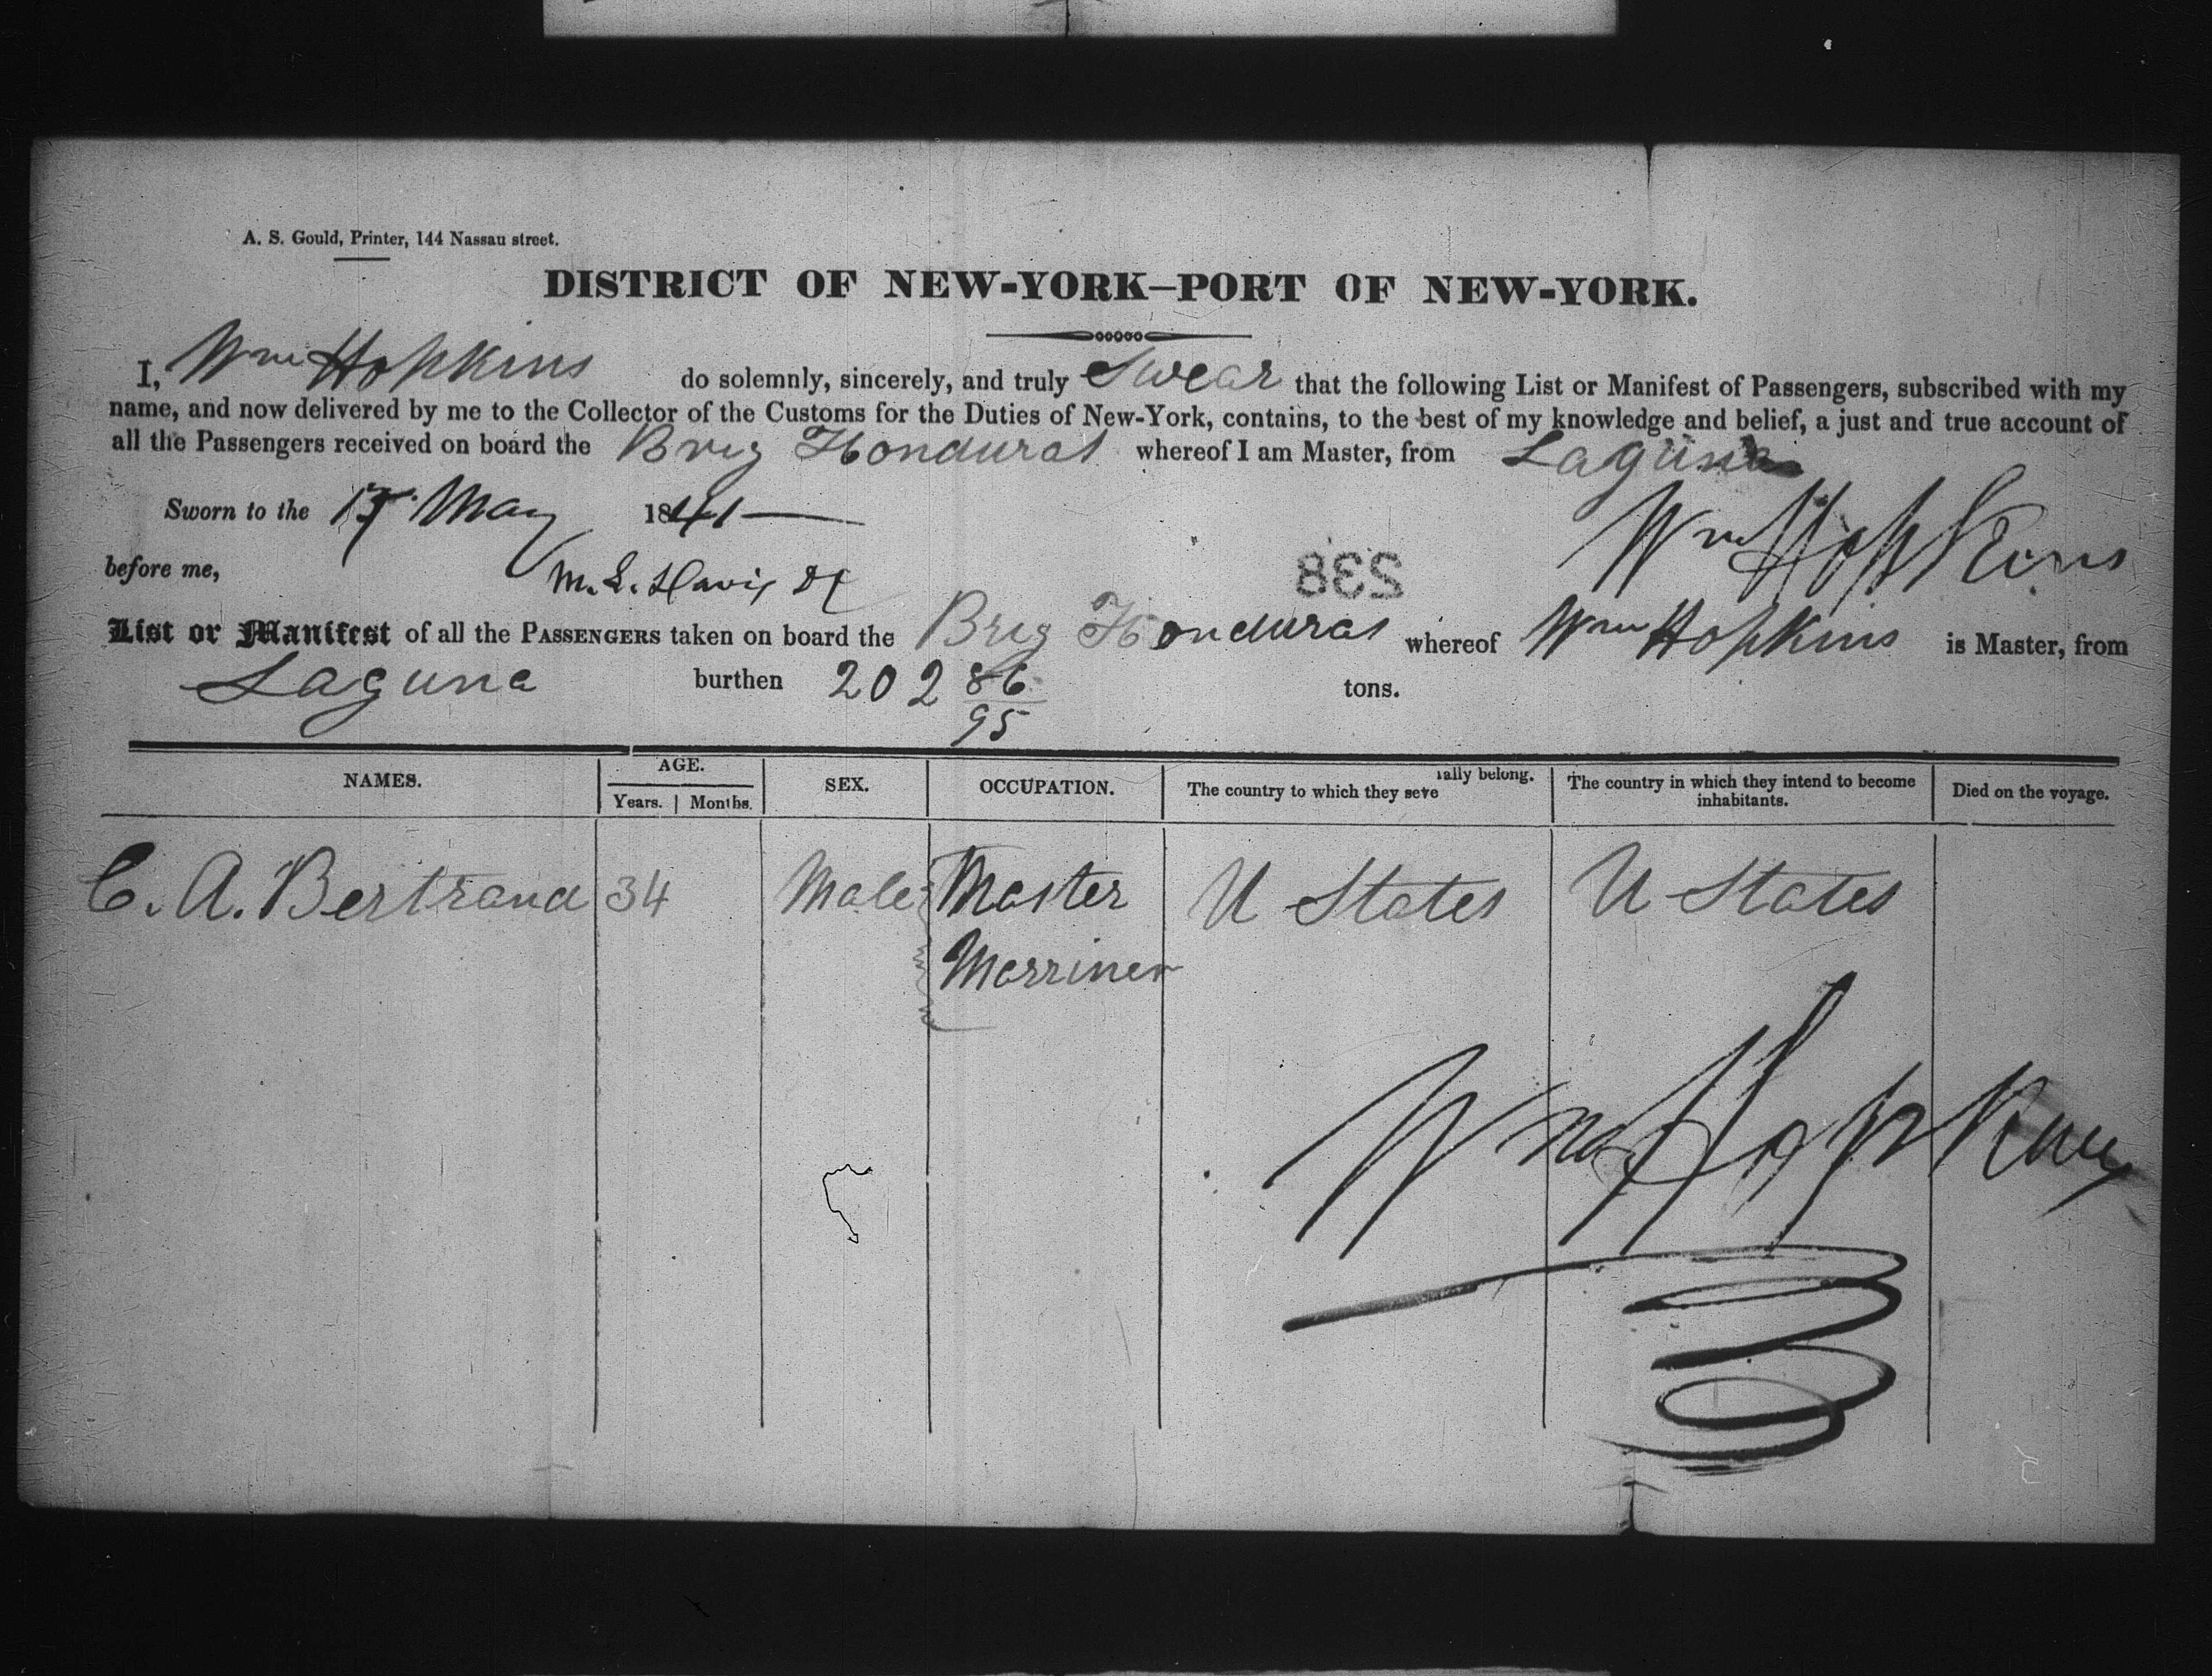 A. S. Gould, Printer, 144 Nassau street.
DISTRICT OF NEW-YORK—PORT OF NEW-YORK.
I, Wm Hopkins do solemnly, sincerely, and truly Swear that the following List or Manifest of Passengers, subscribed with my
name, and now delivered by me to the Collector of the Customs for the Duties of New-York, contains, to the best of my knowledge and belief, a just and true account of
all the Passengers received on board the Brig Honduras whereof I am Master, from Laguna
Sworn to the May 1841
Wm Hopkins
before me, M. L. Davis
238
List or Manifest of all the PASSENGERS taken on board the Brig Honduras whereof Wm Hopkins is Master, from
Laguna burthen 202 86/95 tons.
NAMES. AGE. SEX. OCCUPATION. The country to which they severally belong. The country in which they intend to become inhabitants. Died on the voyage.
Years. Months.
C. A. Bertrand 34 Male Master U States U States
Merriner
Wm Hopkins